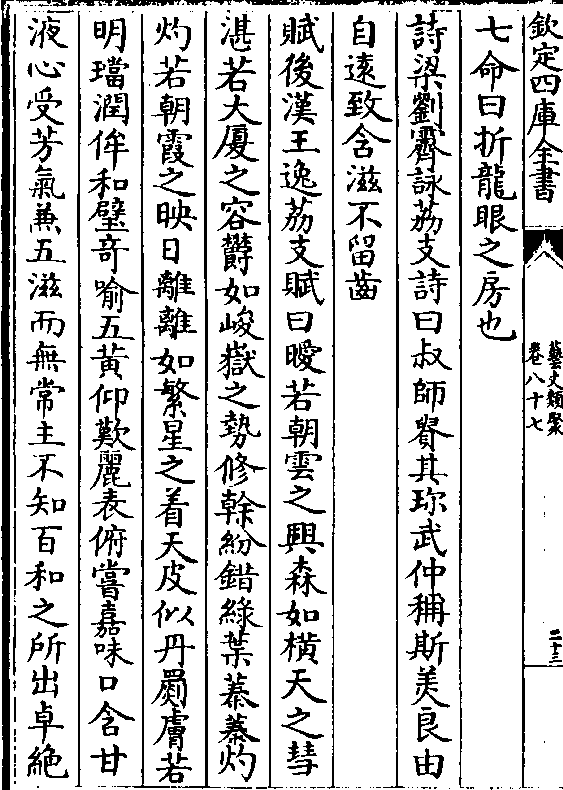 欽定四庫全書
藝文類聚
卷八十七
二十三
七命曰折龍眼之房也
詩梁劉霽詠荔支詩曰叔師貴其珎武仲稱斯美良由
自遠致含滋不留齒
賦後漢王逸荔支賦曰曖若朝雲之興森如橫天之彗
湛若大厦之容欝如峻嶽之勢修幹紛錯綠葉蓁蓁灼
灼若朝霞之映日離離如繁星之着天皮似丹罽膚若
明璫潤侔和璧竒喻五黄仰歎麗表俯嘗嘉味口含甘
液心受芳氣兼五滋而無常主不知百和之所出卓絶